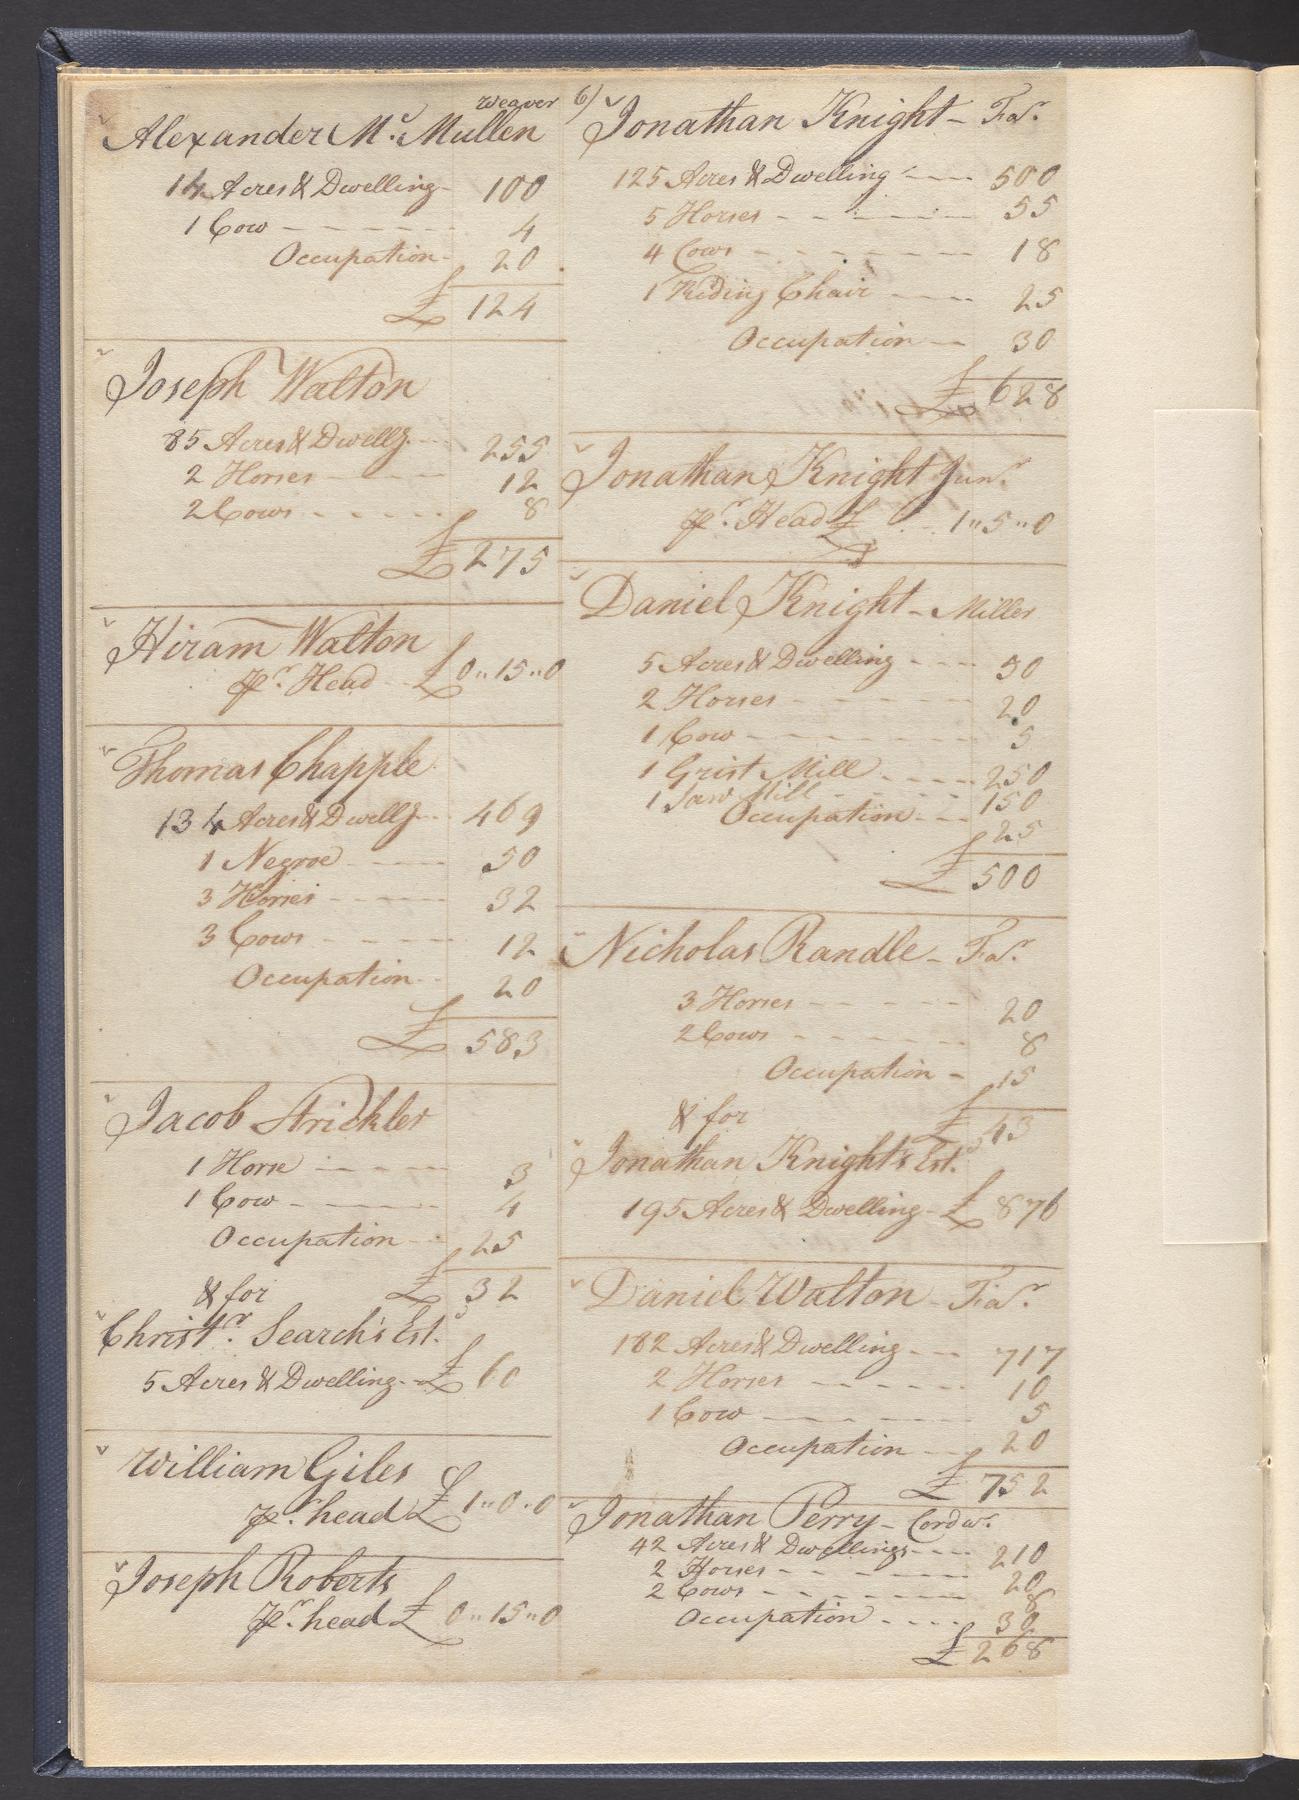 Weaver
Alexander Mc. Mullen
14 Acres & Dwelling - 100
1 Cow - - - - - - 4
Occupation - 20
£ 124
Joseph Walton
85 Acres & Dwellg. - - 255
2 Horses - - - - 12
2 Cows - - - - - 8
£ 275
Hiram Walton
pr. Head - £ 0 " 15 " 0
Thomas Chapple
134 Acres & Dwellg - - 469
1 Negroe - - - - 50
3 Horses - - - - - 32
3 Cows - - - - 12
Occupation - - 20
£ 583
Jacob Strickler
1 Horse - - - - 3
1 Cow - - - - - 4
Occupation - - 25
& for £ 32
Christr. Search's Est.
5 Acres & Dwelling - - £ 60
William Giles
pr. head £ 1 " 0 " 0
Joseph Roberts
pr. head £ 0 " 15 " 0
6)
Jonathan Knight - Far.
125 Acres & Dwelling - - - 500
5 Horses - - - - - - 55
4 Cows - - - - - - - 18
1 Riding Chair - - - - 25
Occupation - - 30
£ 628
Jonathan Knight Junr.
pr. Head £ - - 1 " 5 " 0
Daniel Knight - Miller
5 Acres & Dwelling - - - - 50
2 Horses - - - - - - 20
1 Cow - - - - - - - 5
1 Grist Mill - - - - - 250
1 Saw Mill - - - - - 150
Occupation - - - 25
£ 500
Nicholas Randle - Far.
3 Horses - - - - - 20
2 Cows - - - - - - 8
Occupation - 15
& for £ 43
Jonathan Knight's Est.
195 Acres & Dwelling - £ 876
Daniel Walton - Far.
182 Acres & Dwelling - - - 717
2 Horses - - - - - - 10
1 Cow - - - - - - 5
Occupation - - - 20
£ 752
Jonathan Perry - Cordwr.
42 Acres & Dwellings - - - 210
2 Horses - - - - - - 20
2 Cows - - - - - - - 8
Occupation - - - - 30
£ 268